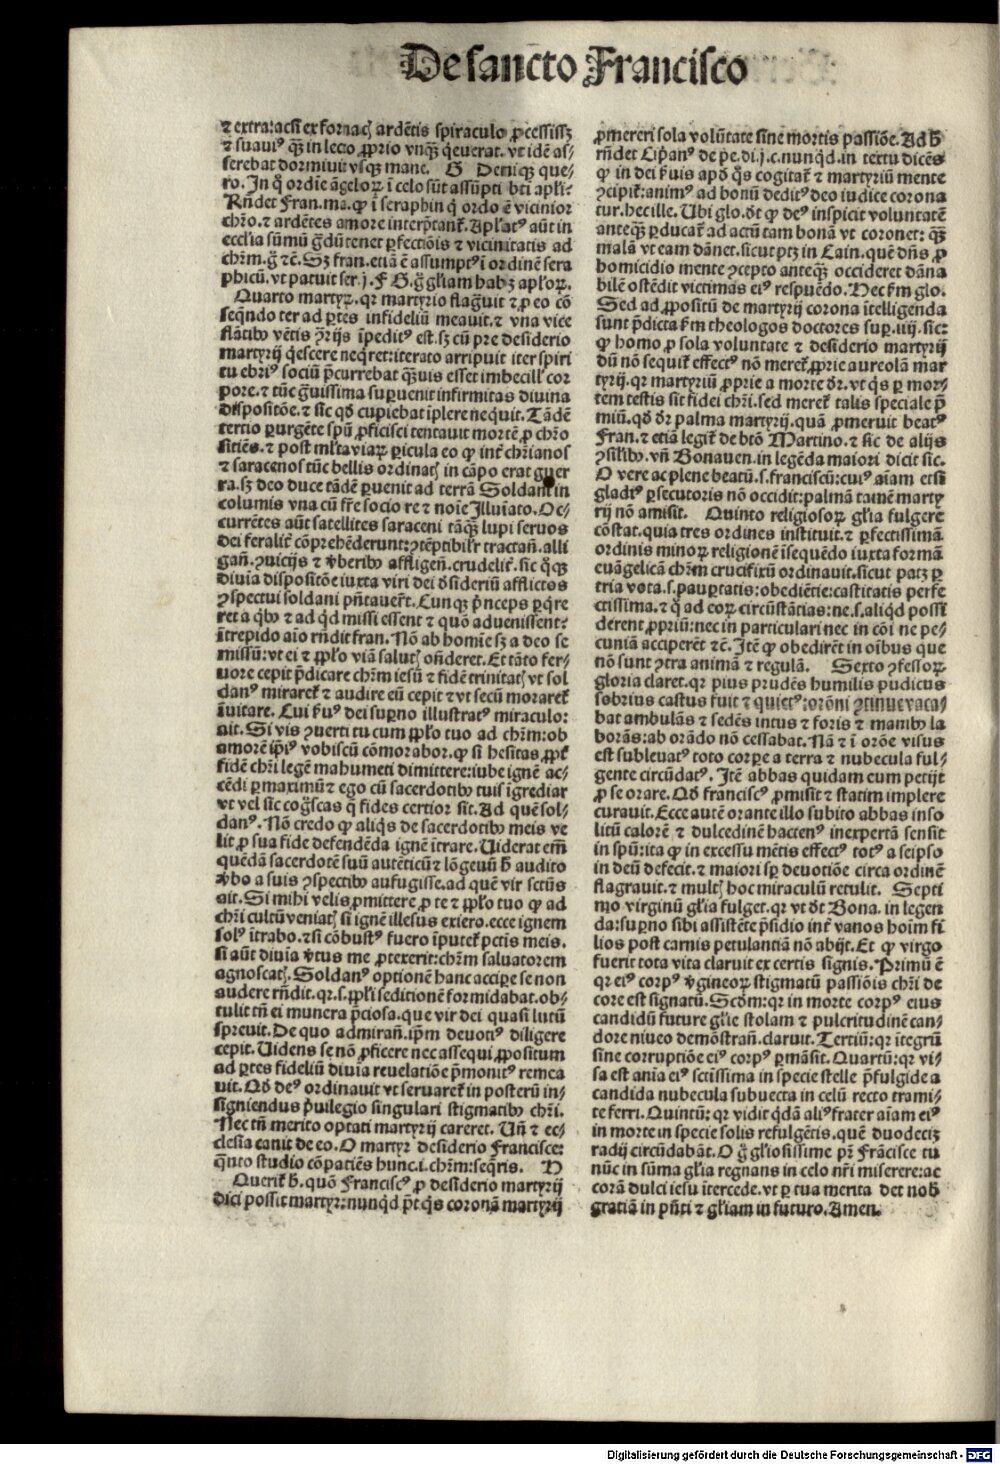 De sancto Francisco
⁊ extra: acsi ex fornacꝭ ardẽtis spiraculo ꝓcessissꝫ
⁊ suaviꝰ qꝫ in lecto ꝓprio vnqꝫ q̃euerat. vt idẽ as⸗
serebat dormiuit vsqꝫ mane. G Deniqꝫ que⸗
ro. In q̊ ordie ãgeloꝝ ĩ celo sũt assũpti bti apl̃i?
Rñdet Fran. ma. ꝙ ĩ seraphin q̊ ordo ẽ vicinior
chr̃o. ⁊ ardẽtes amore interp̃tant᷑. Apl̃atꝰ aũt in
ecclĩa sũmũ g̃dũ tenet ꝑfectiõis ⁊ vicinitatis ad
chr̃m. g̊ ⁊c̃. Sꝫ fran. etiã ẽ assumptꝰ ĩ ordinẽ sera
phicũ. vt patuit ser. j. F G. g̊ gl̃iam habꝫ apl̃oꝝ.
Quarto martyꝝ. qꝛ martyrio flag̃uit ⁊ ꝓ eo cõ
seq̃ndo ter ad ꝑtes infideliũ meauit. ⁊ vna vice
flatibꝰ vẽtis ꝯ̃rijs ĩpeditꝰ est. sꝫ cũ pre desiderio
martyrij q̃escere neq̃ret: iterato arripuit iter spiri
tu ebriꝰ sociũ p̃currebat qꝫuis esset imbecill᷑ cor
pore. ⁊ tũc g̃uissima suꝑuenit infirmitas diuina
dispositõe. ⁊ sic qđ cupiebat ĩplere nequit. Tãdẽ
tertio ꝑurgẽte spũ ꝓficisci tentauit mortẽ ꝓ chr̃o
sitiẽs. ⁊ post ml̃ta viaꝝ ꝑicula eo ꝙ int᷑ chr̃ianos
⁊ saracenos tũc bellis ordinatꝭ in cãpo erat guer
ra. sꝫ deo duce tãdẽ ꝑuenit ad terrã Soldani in
columis vna cũ fr̃e socio re ⁊ noĩe Illuĩato. Oc⸗
currẽtes aũt satellites saraceni tãqꝫ lupi seruos
dei feralit᷑ cõprehẽderunt: ꝯtẽptibil᷑r tractañ. alli
gañ. ꝯuicijs ⁊ v̾beribꝰ affligeñ. crudelit᷑. sic q̊qꝫ
diuĩa dispositõe iuxta viri dei dsideriũ afflictos
ꝯspectui soldani p̃ñtauer̃t. Cunqꝫ p̃nceps ꝑq̃re
ret a qͥbꝰ ⁊ ad qͥd missi essent ⁊ quõ aduenissent?
ĩtrepido aĩo rñdit fran. Nõ ab homĩe sꝫ a deo se
missũ: vt ei ⁊ ppl̃o viã salutꝭ oñderet. Et tãto fer⸗
uore cepit p̃dicare chr̃m iesũ ⁊ fidẽ trinitatꝭ vt sol
danꝰ miraret᷑ ⁊ audire eũ cepit ⁊ vt secũ moraret᷑
ĩuitare. Cui f̃uꝰ dei suꝑno illustratꝰ miraculo:
ait. Si vis ꝯuerti tu cum ppl̃o tuo ad chr̃m: ob
amorẽ ip̃iꝰ vobiscũ cõmorabor. ꝙ si hesitas, ꝓpt᷑
fidẽ chr̃i legẽ mahumeti dimittere: iube ignẽ ac⸗
cẽdi ꝑmaximũ ⁊ ego cũ sacerdotibꝰ tuis ĩgrediar
vt vel sic cog̃scas q̃ fides certior sit. Ad quẽ sol⸗
danꝰ. Nõ credo ꝙ aliqͥs de sacerdotibꝰ meis ve
lit ꝓ sua fide defendẽda ignẽ ĩtrare. Uiderat em̃
quẽdã sacerdotẽ suũ autẽticũ ⁊ lõgeuũ h̾ audito
v̾bo a suis ꝯspectibꝰ aufugisse. ad quẽ vir sctũs
ait. Si mihi velis ꝓmittere ꝓ te ⁊ ppl̃o tuo ꝙ ad
chr̃i cultũ veniatꝭ si ignẽ illesus exiero. ecce ignem
solꝰ ĩtrabo. ⁊ si cõbustꝰ fuero ĩputet᷑ pctĩs meis.
si aũt diuĩa v̾tus me ꝓtexerit: chr̃m saluatorem
agnoscatꝭ. Soldanꝰ optionẽ hanc acciꝑe se non
audere rñdit. qꝛ. s. ppl̃i seditionẽ formidabat. ob⸗
tulit tñ ei munera p̃ciosa. que vir dei quasi lutũ
spreuit. De quo admirañ. ip̃m deuotiꝰ diligere
cepit. Uidens se nõ ꝓficere nec assequi ꝓpositum
ad ꝑtes fideliũ diuĩa reuelatiõe p̃monitꝰ remea
uit. Qđ deꝰ ordinauit vt seruaret᷑ in posterũ in⸗
signiendus p̃uilegio singulari stigmatibꝰ chr̃i.
Nec tñ merito optati martyrij careret. Uñ ⁊ ec⸗
clesia canit de eo. O martyr desiderio Francisce:
q̃nto studio cõpatiẽs hunc. i. chr̃m: seq̃ris. H
Querit᷑ h̾. quõ Franciscꝰ ꝓ desiderio martyrij
dici possit martyr: nunqͥd p̃t qͥs coronã martyrij
ꝓmereri sola volũtate sine mortis passiõe. Ad h̾
rñdet Cip̃anꝰ de pe. di. j. c. nunqͥd. in textu dicẽs
ꝙ in dei f̃uis apđ qͥs cogitat᷑ ⁊ martyriũ mente
ꝯcipit᷑: animꝰ ad bonũ deditꝰ deo iudice corona
tur. hec ille. Ubi glo. dt ꝙ deꝰ inspicit voluntatẽ
anteqꝫ ꝑducat᷑ ad actũ tam bonã vt coronet: qꝫ
malã vt eam dãnet. sicut ptꝫ in Cain. quẽ dñs ꝓ
homicidio mente ꝯcepto anteqꝫ occideret dãna
bilẽ ostẽdit victimas eiꝰ respuẽdo. Hec f̃m glo.
Sed ad ꝓpositũ de martyrij corona ĩtelligenda
sunt p̃dicta f̃m theologos doctores suꝑ. iiij. sic:
ꝙ homo ꝓ sola voluntate ⁊ desiderio martyrij
dũ nõ sequit᷑ effectꝰ nõ meret᷑ ꝓprie aureolã mar
tyrij. qꝛ martyriũ ꝓprie a morte dr̃. vt qͥs ꝑ mor⸗
tem testis sit fidei chr̃i. sed meret᷑ talis speciale p̃
miũ. qđ dr̃ palma martyrij. quã ꝓmeruit beatꝰ
Fran. ⁊ etiã legit᷑ de btõ Martino. ⁊ sic de alijs
ꝯsilibꝰ. vñ Bonauen. in legẽda maiori dicit sic.
O vere ac plene beatũ. s. franciscũ: cuiꝰ aĩam etsi
gladiꝰ ꝑsecutoris nõ occidit: palmã tamẽ marty
rij nõ amisit. Quinto religiosoꝝ gl̃ia fulgere
cõstat. quia tres ordines instituit. ⁊ ꝑfectissimã
ordinis minoꝝ religionẽ ĩsequẽdo iuxta formã
euãgelicã chr̃m crucifixũ ordinauit. sicut patꝫ ꝑ
tria vota. s. pauꝑtatis: obediẽtie: castitatis perfe
ctissima. ⁊ q̊ ad eoꝝ circũstãtias: ne. s. aliqͥd possi
derent ꝓpriũ: nec in particulari nec in cõi ne pe⸗
cuniã acciperẽt ⁊c̃. Itẽ ꝙ obedirẽt in oĩbus que
nõ sunt ꝯtra animã ⁊ regulã. Sexto ꝯfessoꝝ
gloria claret. qꝛ pius prudẽs humilis pudicus
sobrius castus fuit ⁊ quietꝰ: orõni ꝯtinue vaca⸗
bat ambulãs ⁊ sedẽs intus ⁊ foris ⁊ manibꝰ la
borãs: ab orãdo nõ cessabat. Nã ⁊ ĩ orõe visus
est subleuatꝰ toto corpore a terra ⁊ nubecula ful⸗
gente circũdatꝰ. Itẽ abbas quidam eum petijt
ꝓ se orare. Qđ franciscꝰ ꝓmisit ⁊ statim implere
curauit. Ecce autẽ orante illo subito abbas inso
litũ calorẽ ⁊ dulcedinẽ hactenꝰ inexpertã sensit
in spũ: ita ꝙ in excessu mẽtis effectꝰ totꝰ a seipso
in deũ defecit. ⁊ maiori sꝑ deuotiõe circa ordinẽ
flagrauit. ⁊ multꝭ hoc miraculũ retulit. Septi
mo virginũ gl̃ia fulget. qꝛ vt dt Bona. in legen
da: suꝑno sibi assistẽte p̃sidio int᷑ vanos hoĩm fi
lios post carnis petulantiã nõ abijt. Et ꝙ virgo
fuerit tota vita claruit ex certis signis. Primũ ẽ
qꝛ eiꝰ corpꝰ v̾gineoꝝ stigmatũ passiõis chr̃i de
core est signatũ. Scđm: qꝛ in morte corpꝰ eius
candidũ future gl̃ie stolam ⁊ pulcritudinẽ can⸗
dore niueo demõstrañ. claruit. Tertiũ: qꝛ ĩtegrũ
sine corruptiõe eiꝰ corpꝰ ꝑmãsit. Quartũ: qꝛ vi⸗
sa est anĩa eiꝰ sctĩssima in specie stelle p̃fulgide a
candida nubecula subuecta in celũ recto trami⸗
te ferri. Quintũ: qꝛ vidit qͥdã aliꝰ frater aĩam eiꝰ
in morte in specie solis refulgẽtis. quẽ duodeciꝫ
radij circũdabãt. O g̊ gl̃iosissime pr̃ Frãcisce tu
nũc in sũma gl̃ia regnans in celo nr̃i miserere: ac
corã dulci iesu ĩtercede. vt ꝑ tua merita det nob̾
gratiã in p̃ñti ⁊ gl̃iam in futuro. Amen.
Digitalisierung gefördert durch die Deutsche Forschungsgemeinschaft - DFG